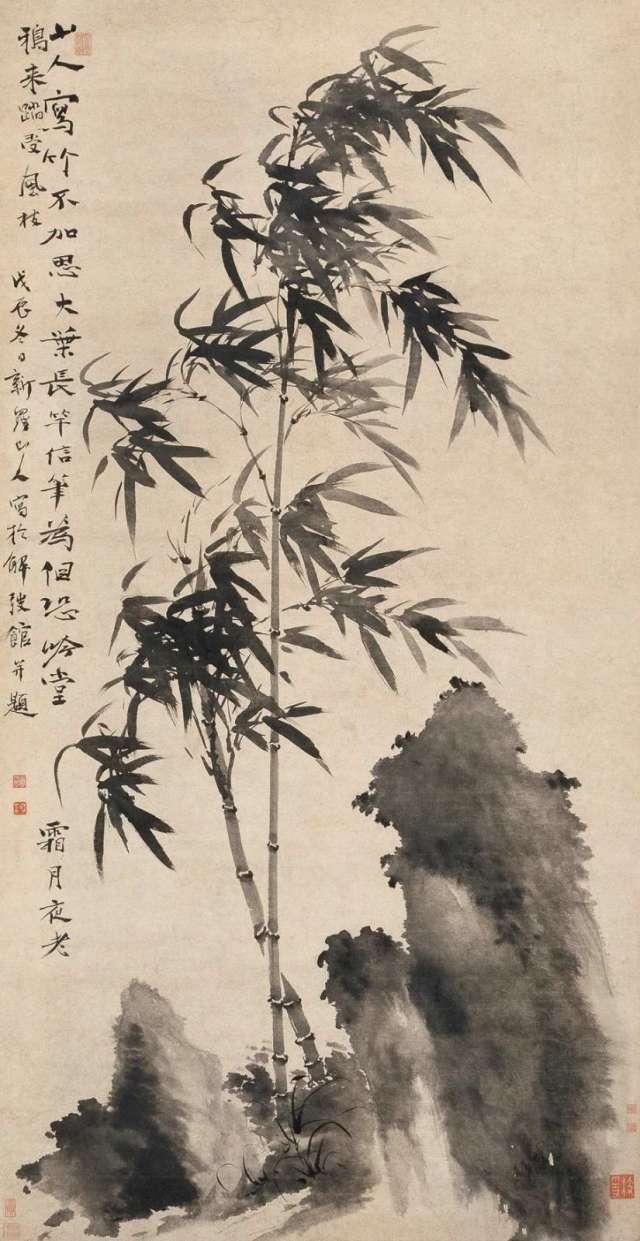 山人寫竹不加思大葉長竿信筆為但恐吟堂霜月夜老
鴉来踏受風枝
戊辰冬日新羅山人寫於解弢館并題